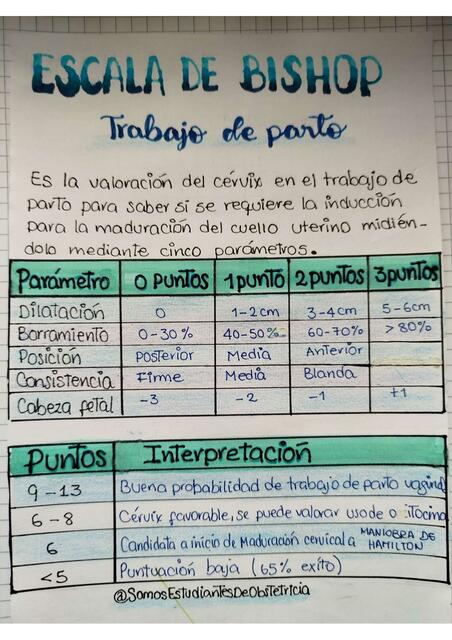 ESCALA DE BISHOP
Trabajo de parto
Es la valoración del cérvix en el trabajo de
parto para saber si se requiere la inducción
para la maduración del cuello uterino midién-
dolo mediante cinco parámetros.
Parámetro 0 PUNTOS 1 punto 2 puntos 3 puntos
Dilatación 0 1-2cm 3-4cm 5-6cm
Borramiento 0-30% 40-50% 60-70% >80%
Posición Posterior Media Anterior
Consistencia Firme Media Blanda
Cabeza fetal -3 -2 -1 +1
Puntos Interpretación
9-13 Buena probabilidad de trabajo de parto vaginal
6-8 Cérvix favorable, se puede valorar uso de oxitocina
6 Candidata a inicio de Maduración cervical a MANIOBRA DE HAMILTON
<5 Puntuación baja (65% exito)
@SomosEstudiantesDeObstetricia